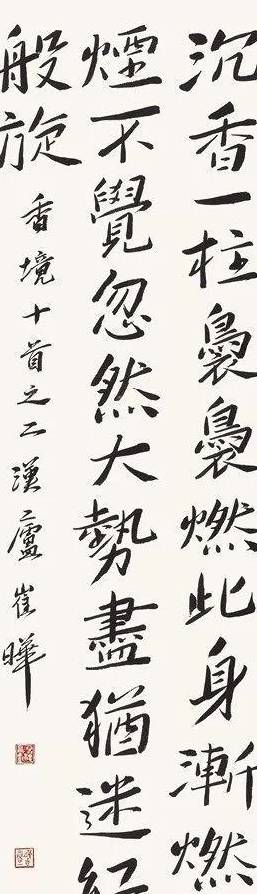 沉香一柱裊裊燃此身漸燃
煙不覺忽然大勢盡猶迷紅
般旋
香境十首之二漢廬崔曄